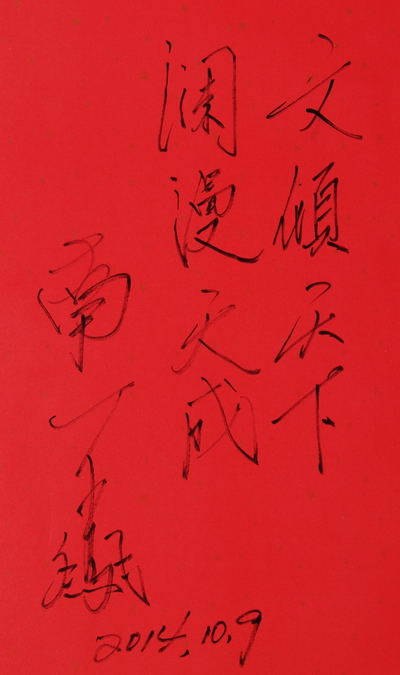 文傾天下
澜漫天成
南丁
2014.10.9